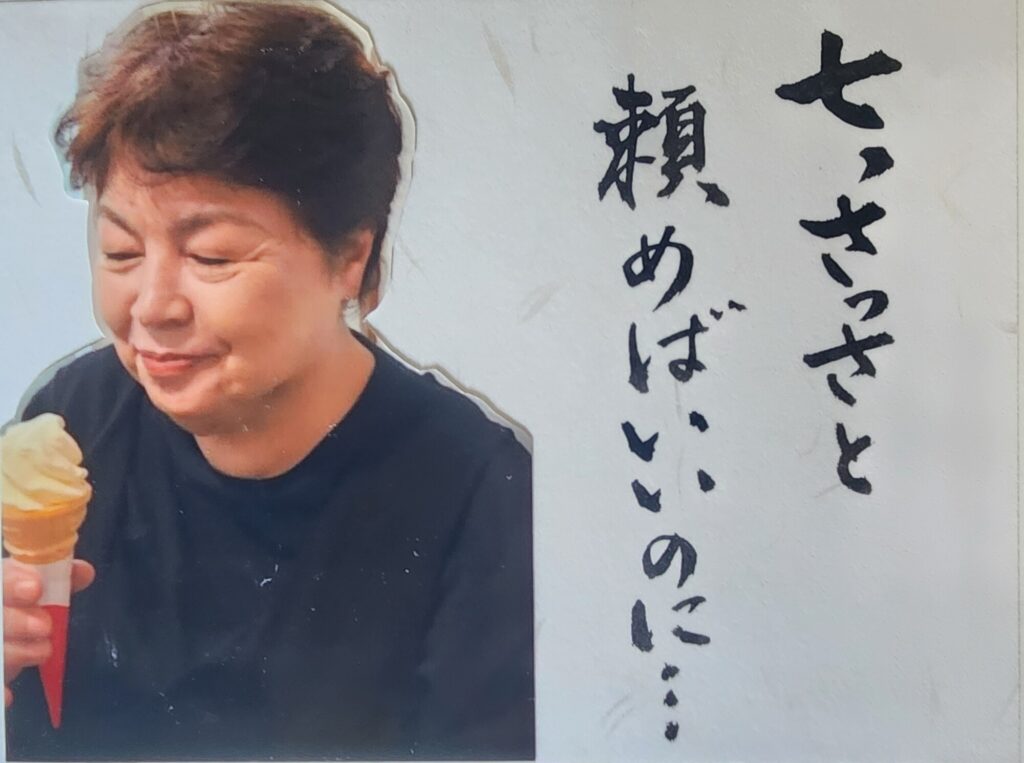 七、さっさと
頼めばいいのに…